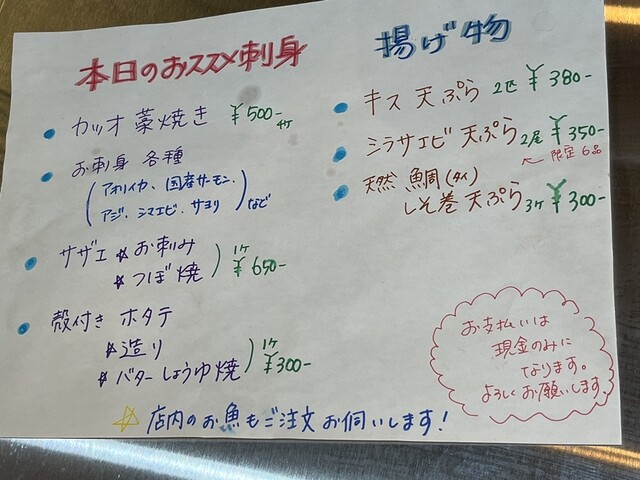 本日のおススメ刺身
カツオ 藁焼き ¥500- 4ケ
お刺身 各種
(アオリイカ、国産サーモン、
アジ、シマエビ、サヨリ)など
サザエ ☆お刺み
☆つぼ焼 )1ケ ¥650-
殻付き ホタテ
☆造り
☆バターしょうゆ焼 )1ケ ¥300-
☆店内のお魚もご注文お伺いします!
揚げ物
キス 天ぷら 2匹 ¥380-
シラサエビ 天ぷら 2尾 ¥350-
←限定6品
天然 鯛(タイ)
しそ巻 天ぷら 3ケ ¥300-
お支払いは
現金のみに
なります。
よろしくお願いします。